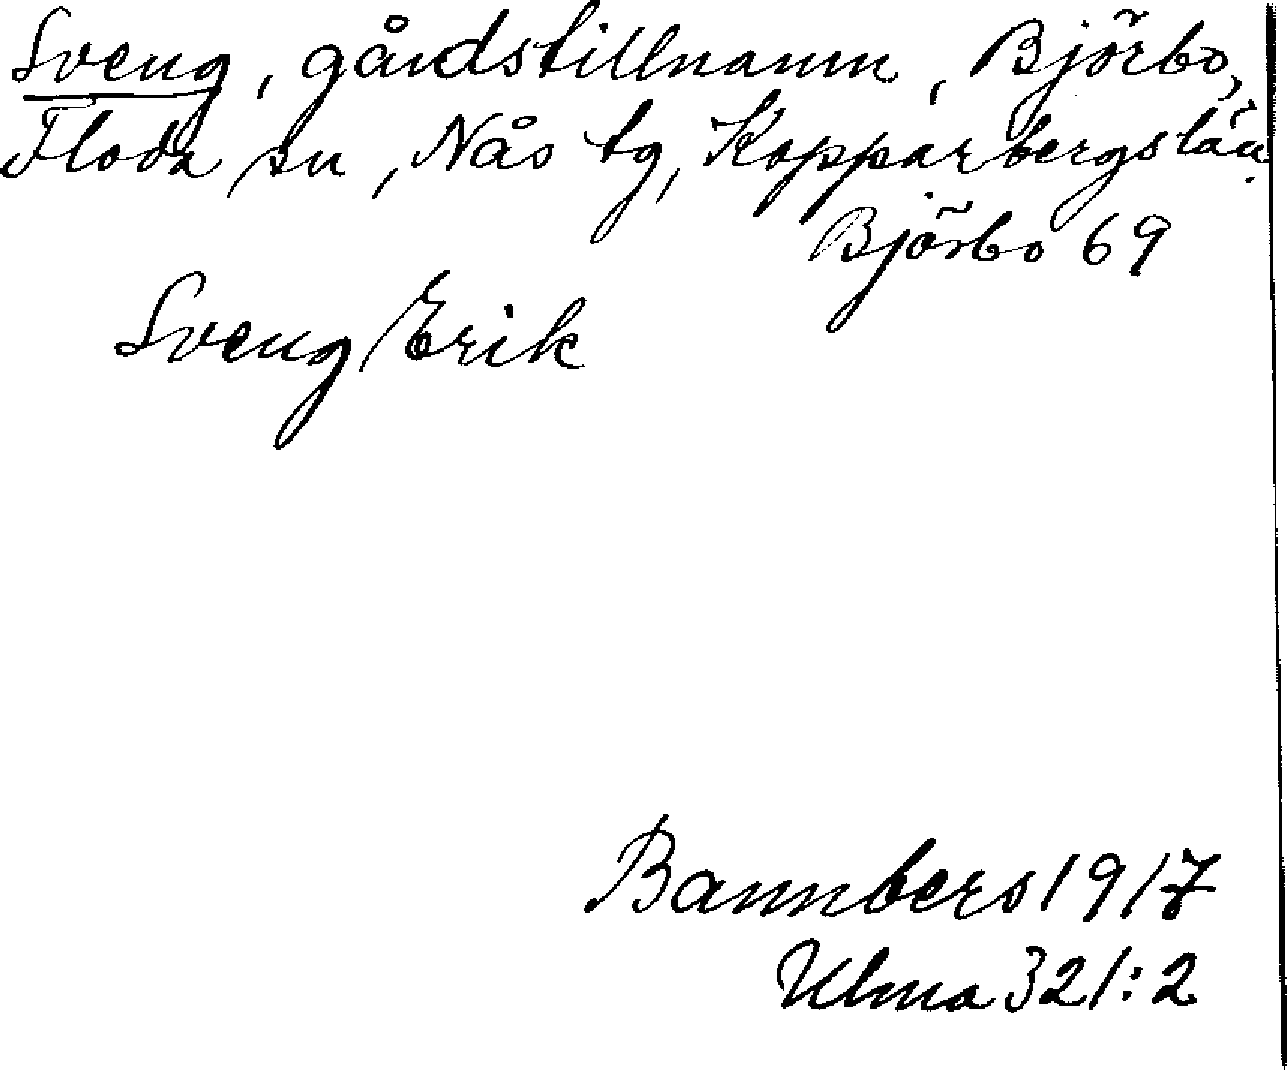 Sveng, gårdstillnamn, Björbo,
Floda sn, Nås tg, Kopparbergs län.
Björbo 69
Sveng Erik
Bannbers 1917
Ulma 321:2